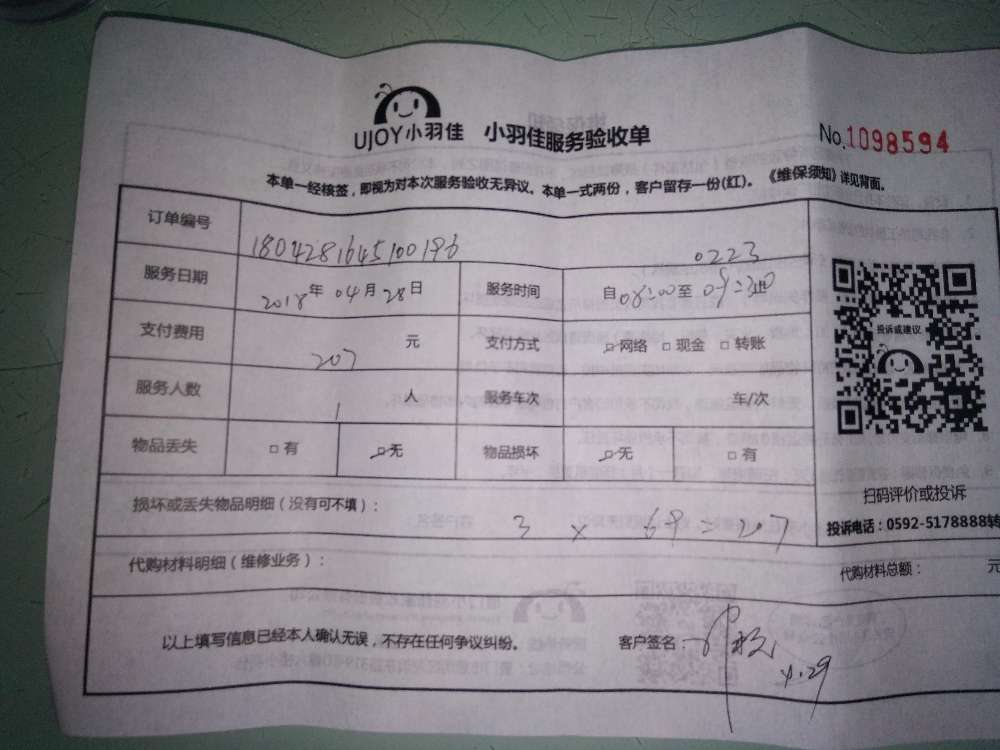 UJOY小羽佳 小羽佳服务验收单 No.1098594
本单一经核签，即视为对本次服务验收无异议。本单一式两份，客户留存一份(红)。《维保须知》详见背面。
订单编号 1804281645100196 0223
服务日期 2018年04月28日 服务时间 自08:00至
支付费用 207 元 支付方式 □网络 □现金 □转账
服务人数 1 人 服务车次 车/次
物品丢失 □有 □无 物品损坏 □无 □有
投诉或建议
扫码评价或投诉
投诉电话：0592-5178888转
损坏或丢失物品明细（没有可不填）：
3 x 69 = 207
代购材料明细（维修业务）： 代购材料总额： 元
以上填写信息已经本人确认无误，不存在任何争议纠纷。 客户签名：
4.29